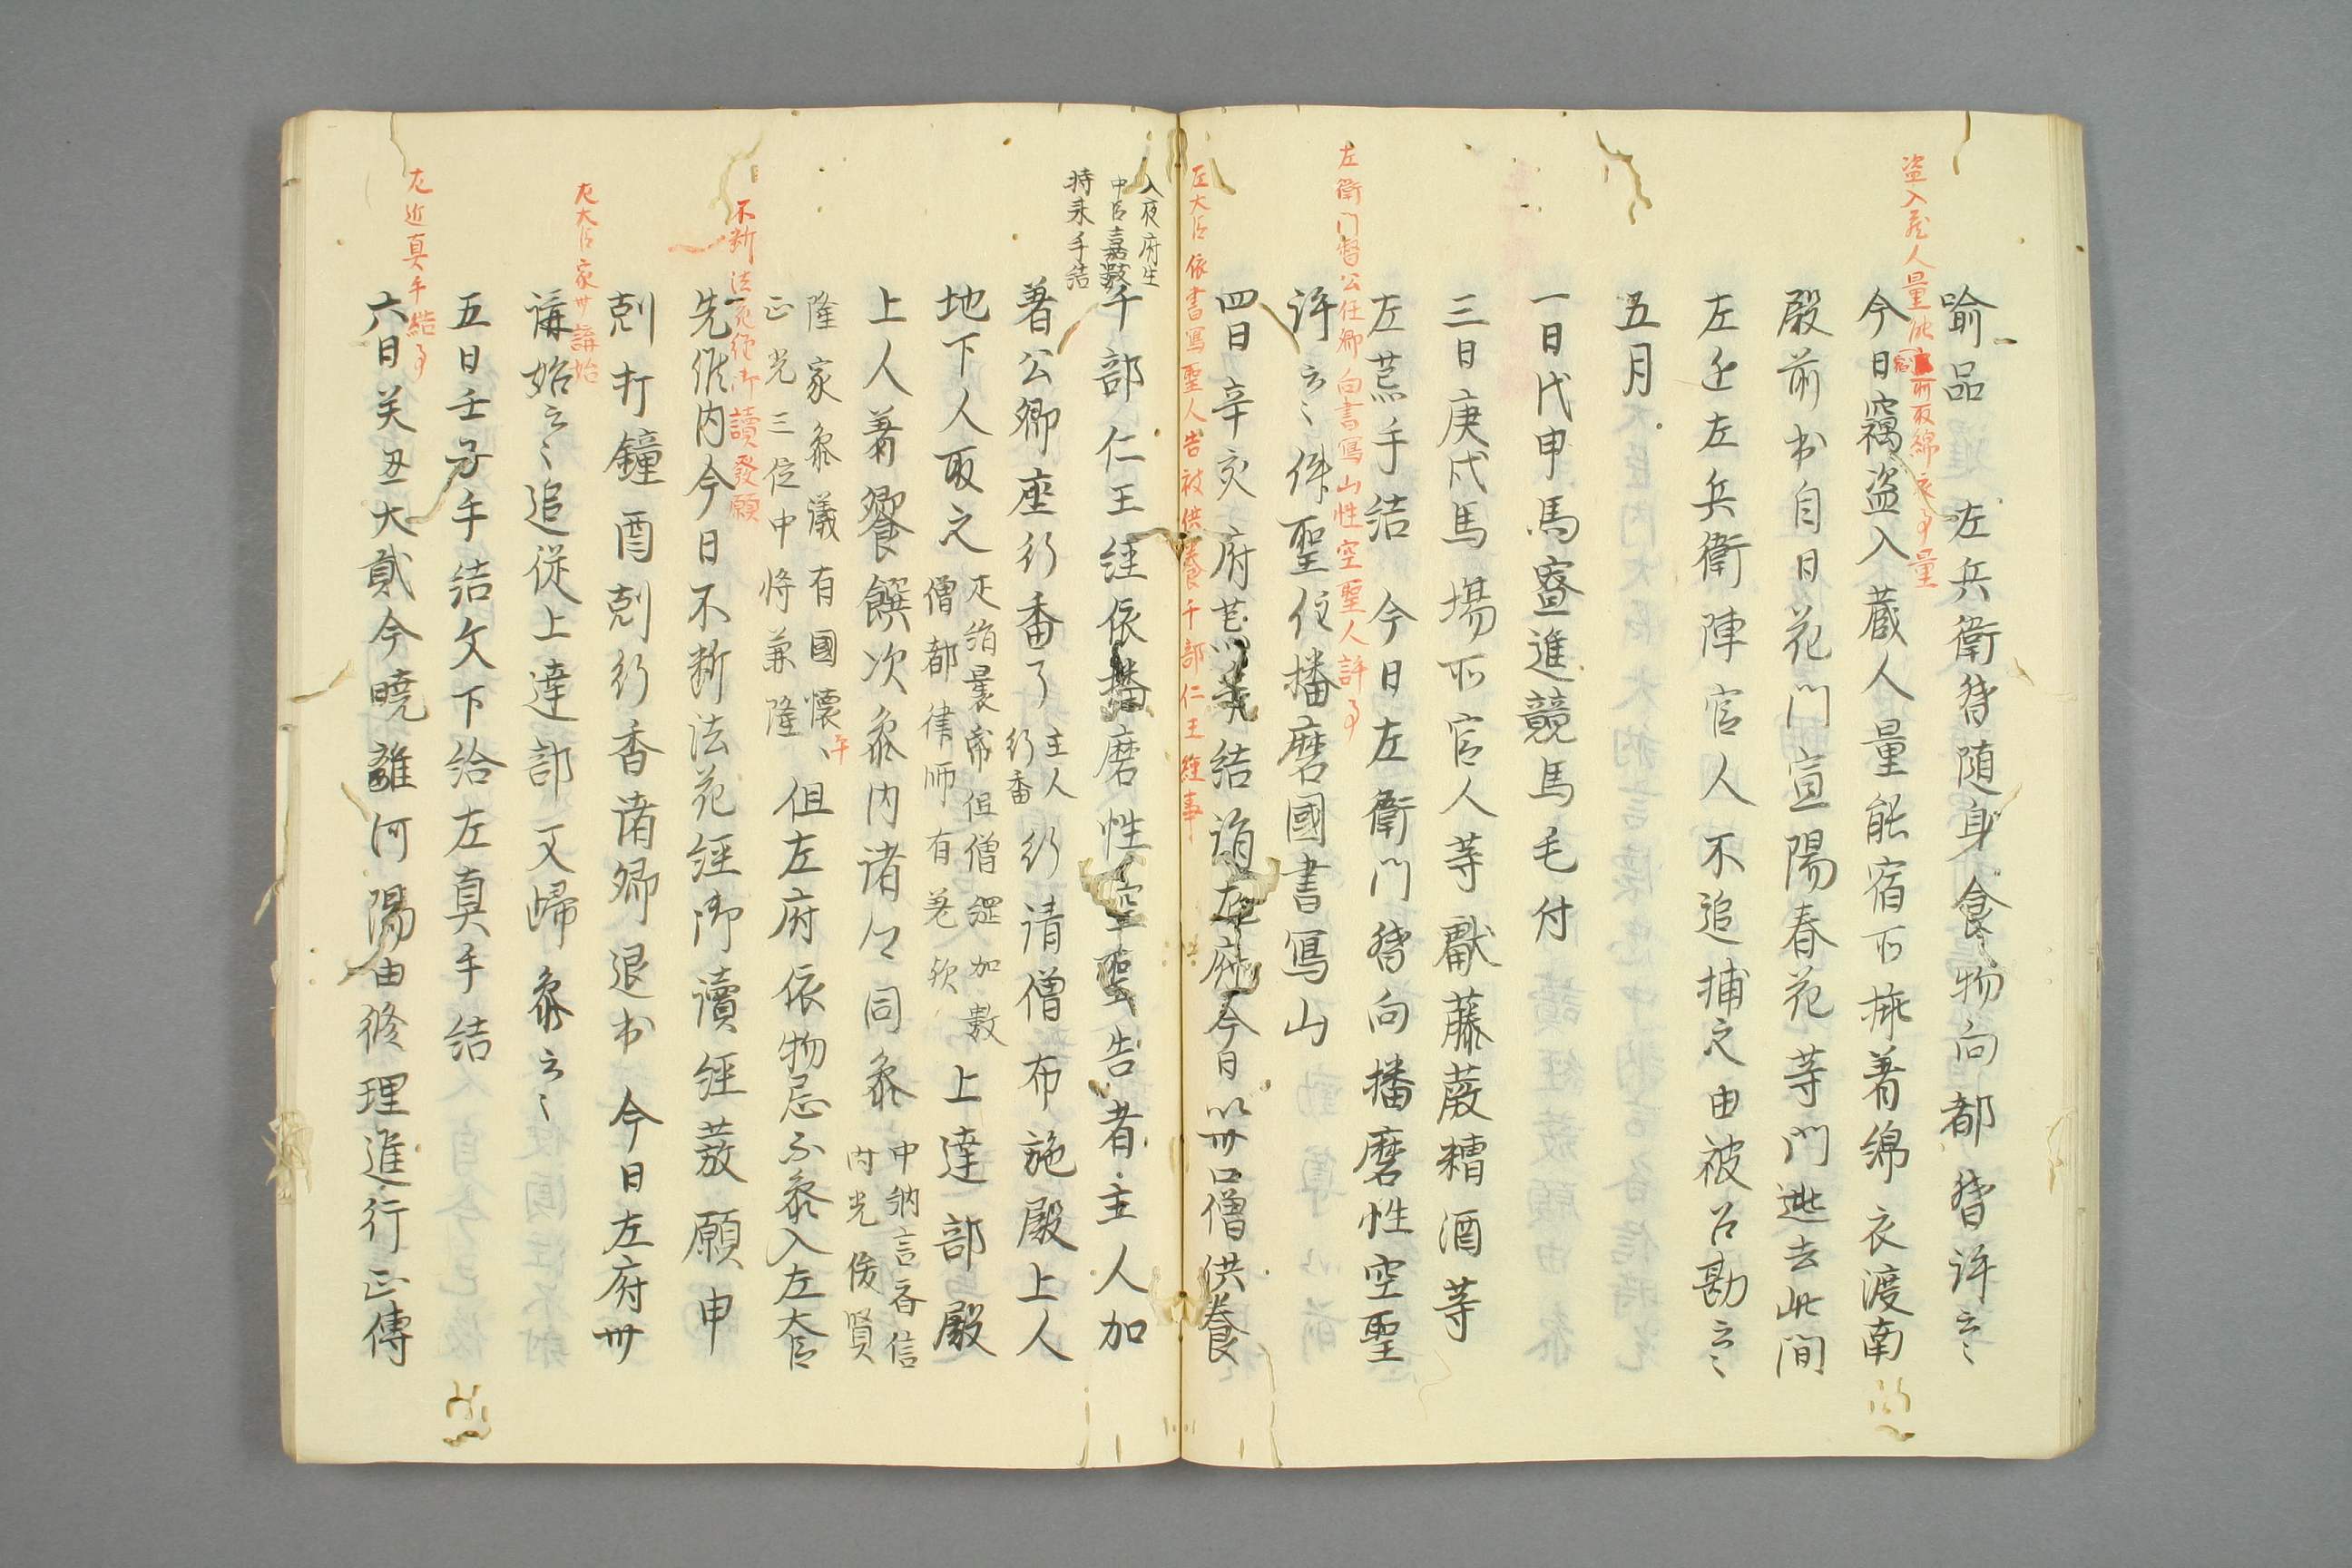 盗入蔵人量能宿所取綿衣事
喩品 左兵衛督随身食物向都督許云々
今日竊盗入蔵人量能宿所掠着綿衣渡南
殿前出自日花門宣陽春花等門逃去此間
左近左兵衛陣官人不追捕之由被召勘云々
五月
一日戊申馬寮進競馬毛付
三日庚戌馬場所官人等獻藤蘰糟酒等
左衛門督公任卿向書寫山性空聖人許事
左荒手結 今日左衛門督向播磨性空聖
許云々件聖住播磨國書寫山
左大臣依書寫聖人告被供養千部仁王経事
四日辛亥府荒手結 詣左府今日以卅口僧供養
入夜府生
中臣嘉數
持来手結
千部仁王経依播磨性空聖告者主人加
着公卿座行香了主人行香行請僧布施殿上人
地下人取之 僧都律師有差歟 上達部殿
上人著饗饌次参内諸卿同参 中納言斉信
内光俊賢
隆家参議有國懐平
正光三位中将兼隆
但左府依物忌不参入左大臣
不断法花経御讀發願
先候内今日不断法花経御讀経發願申
剋打鐘酉剋行香諸卿退出 今日左府卅
左大臣家卅講始
講始云々追従上達部又歸参云々
五日壬子手結文下給左真手結
左近真手結事
六日癸丑大貳今暁離河陽由修理進行正傳